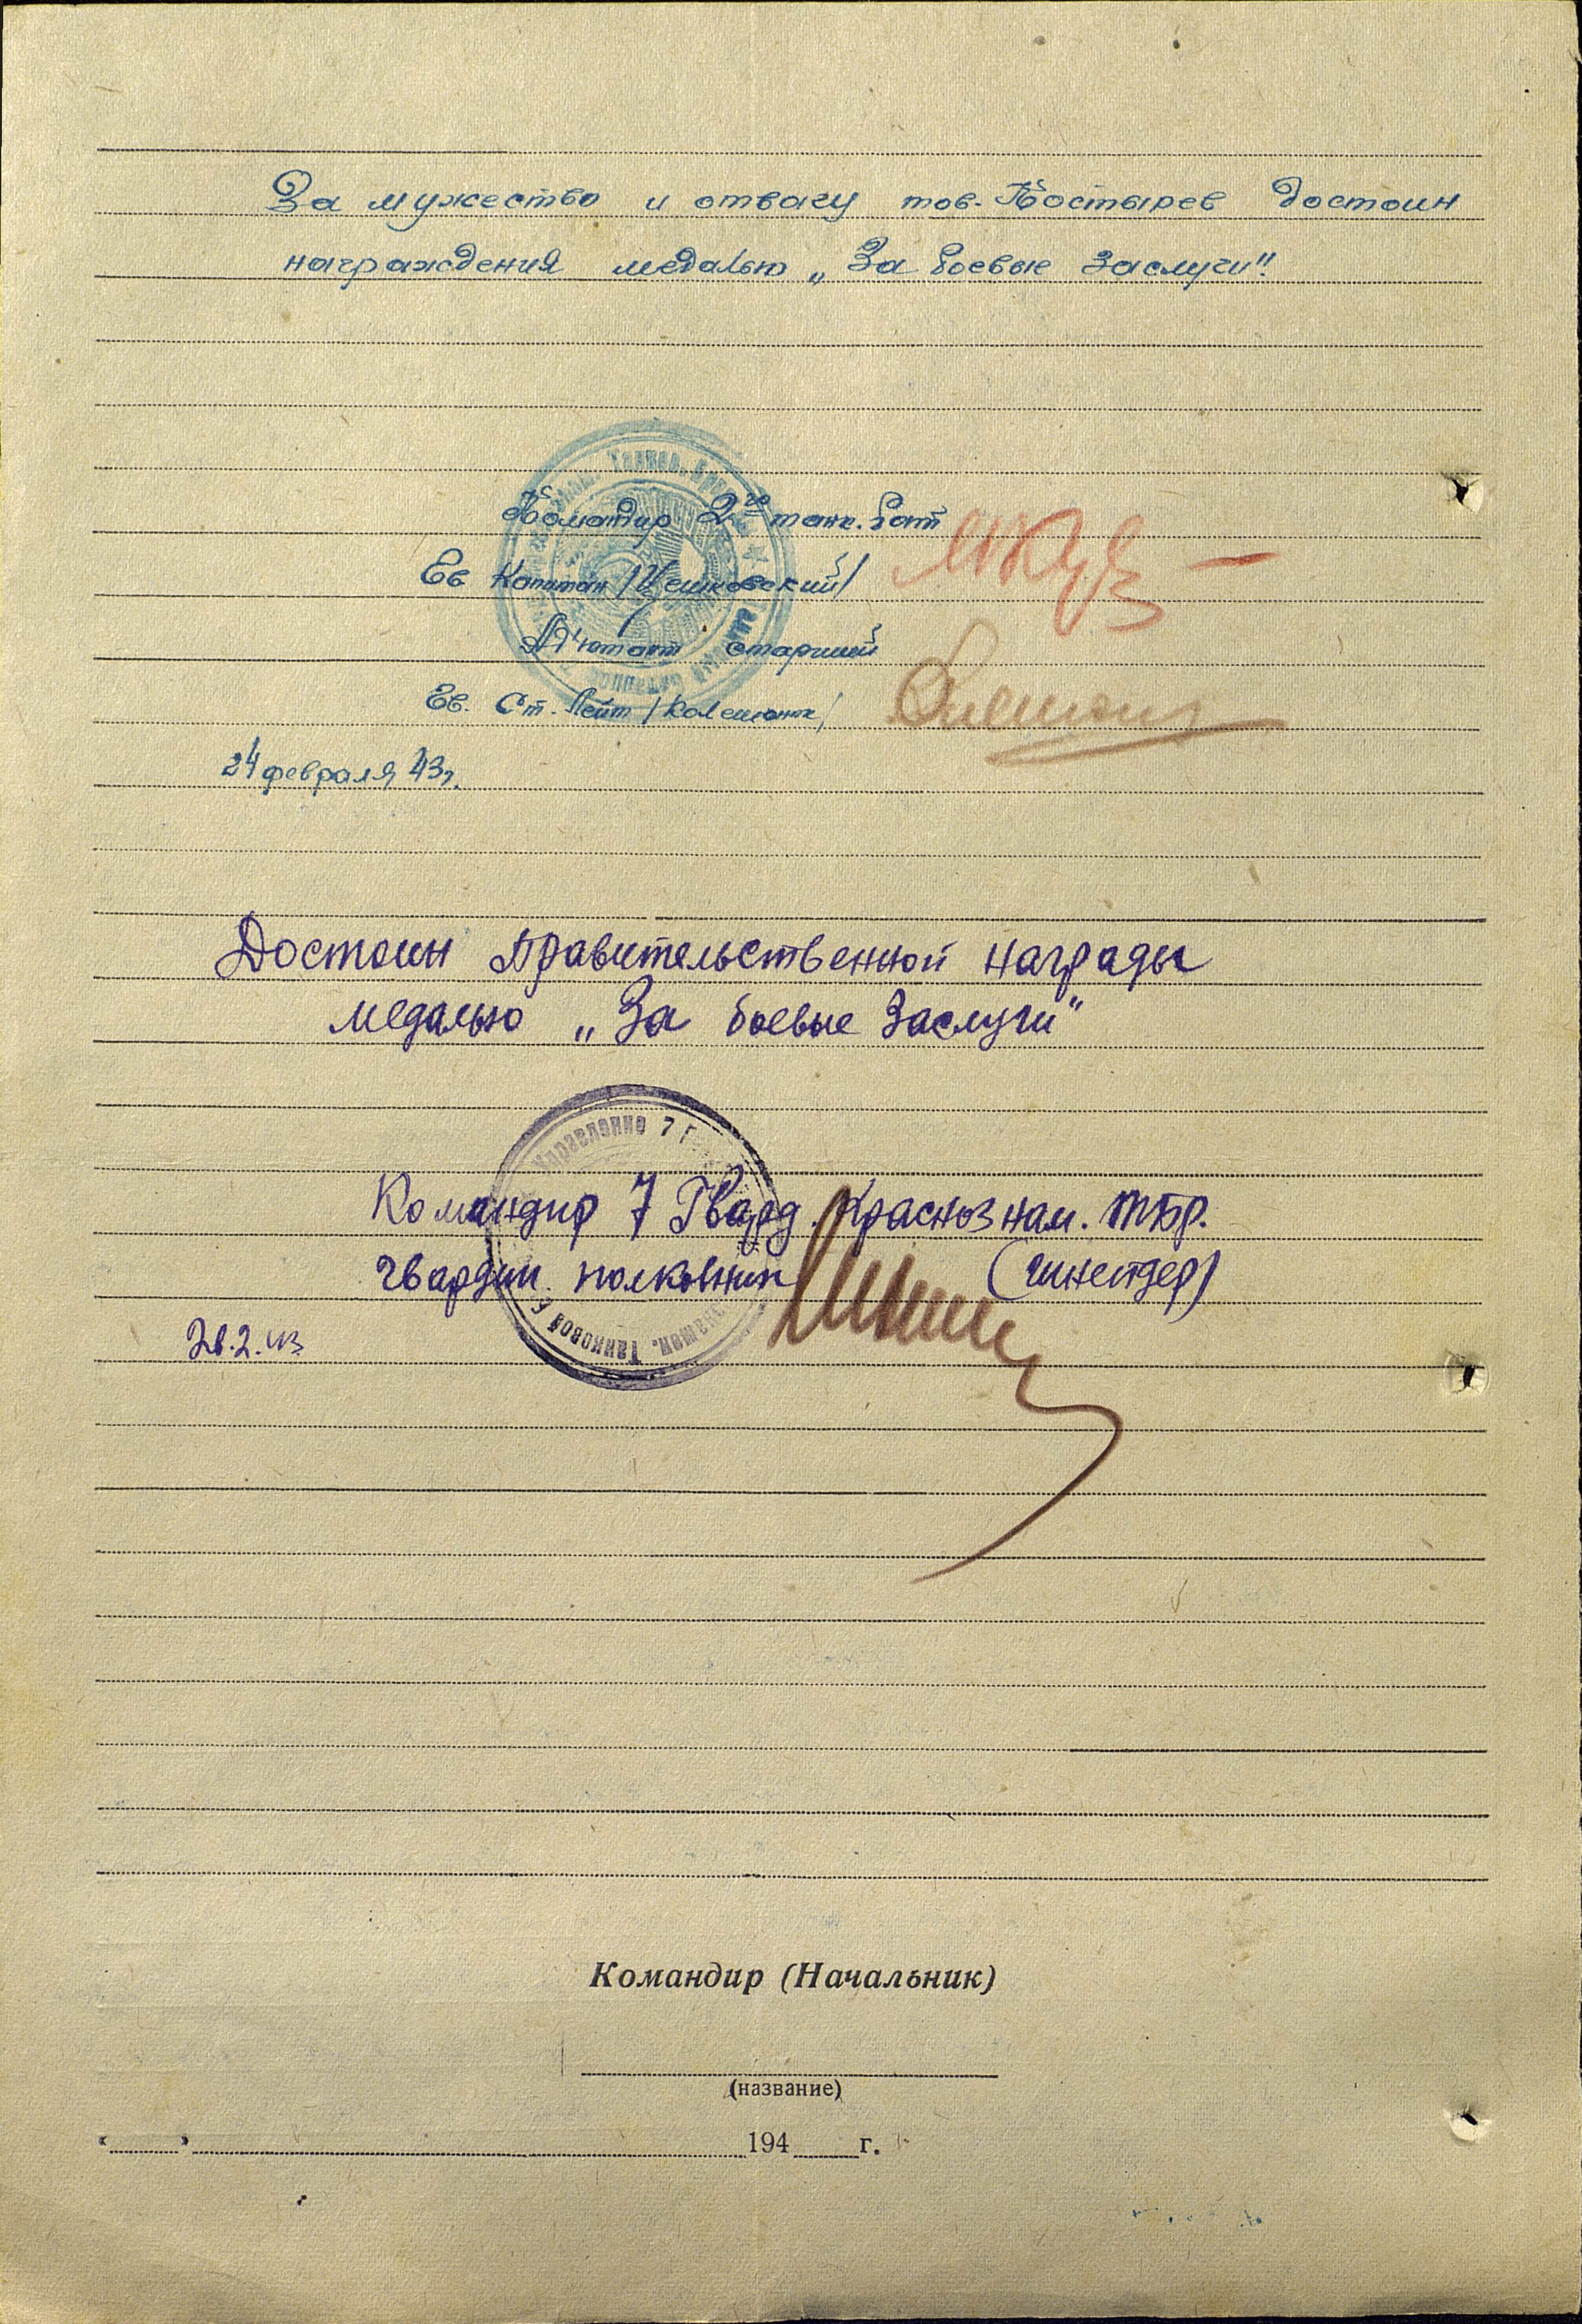 За мужество и отвагу тов. Костырев достоин
награждения медалью „За боевые заслуги".
Коматдир 2го танк. бат
Гв. Капитан /Цешковский/
Адъютант старший
Гв. Ст. Лейт
24 февраля 43г.
Достоин Правительственной награды
медалью „За боевые заслуги"
Управление 7
Командир 7 Гвард. Краснознам. тбр.
гвардии полковник (Шнейдер)
Танковой
Командир (Начальник)
(название)
« » 194 г.